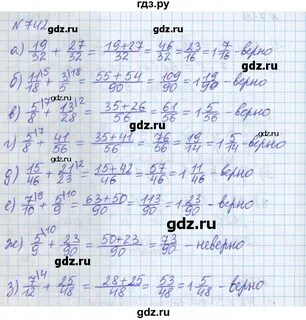 №742
а) 19/32 + 27/32 = 19+27/32 = 46/32 = 23/16 = 1 7/16 - верно
б) 11\5/18 + 3\18/5 = 55+54/90 = 109/90 = 1 19/90 - верно
в) 5\7/8 + 13\2/28 = 35+26/56 = 61/56 = 1 5/56 - верно
г) 5\7/8 + 41/56 = 35+41/56 = 76/56 = 19/14 = 1 5/14 - верно
д) 15/46 + 21\2/23 = 15+42/46 = 57/46 = 1 11/46 - верно
е) 7\9/10 + 5\10/9 = 63+50/90 = 113/90 = 1 23/90 - верно
ж) 5\10/9 + 23/90 = 50+23/90 = 73/90 - неверно
з) 7\4/12 + 25/48 = 28+25/48 = 53/48 = 1 5/48 - верно
gdz.ru
gdz.ru
gdz.ru
gdz.ru
gdz.ru